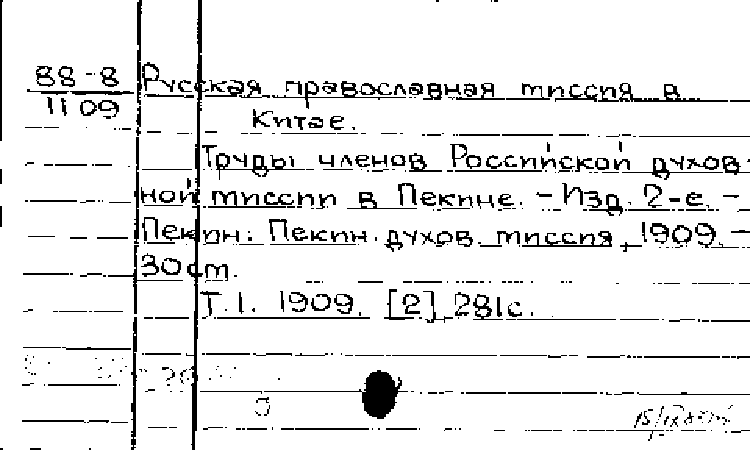 88-8
11 09
Русская православная миссия в
Китае.
Труды членов Российской духов-
ной миссии в Пекине. - Изд. 2-е. -
Пекин: Пекин. духов. миссия, 1909. -
30 см.
Т.1. 1909. [2], 281с.